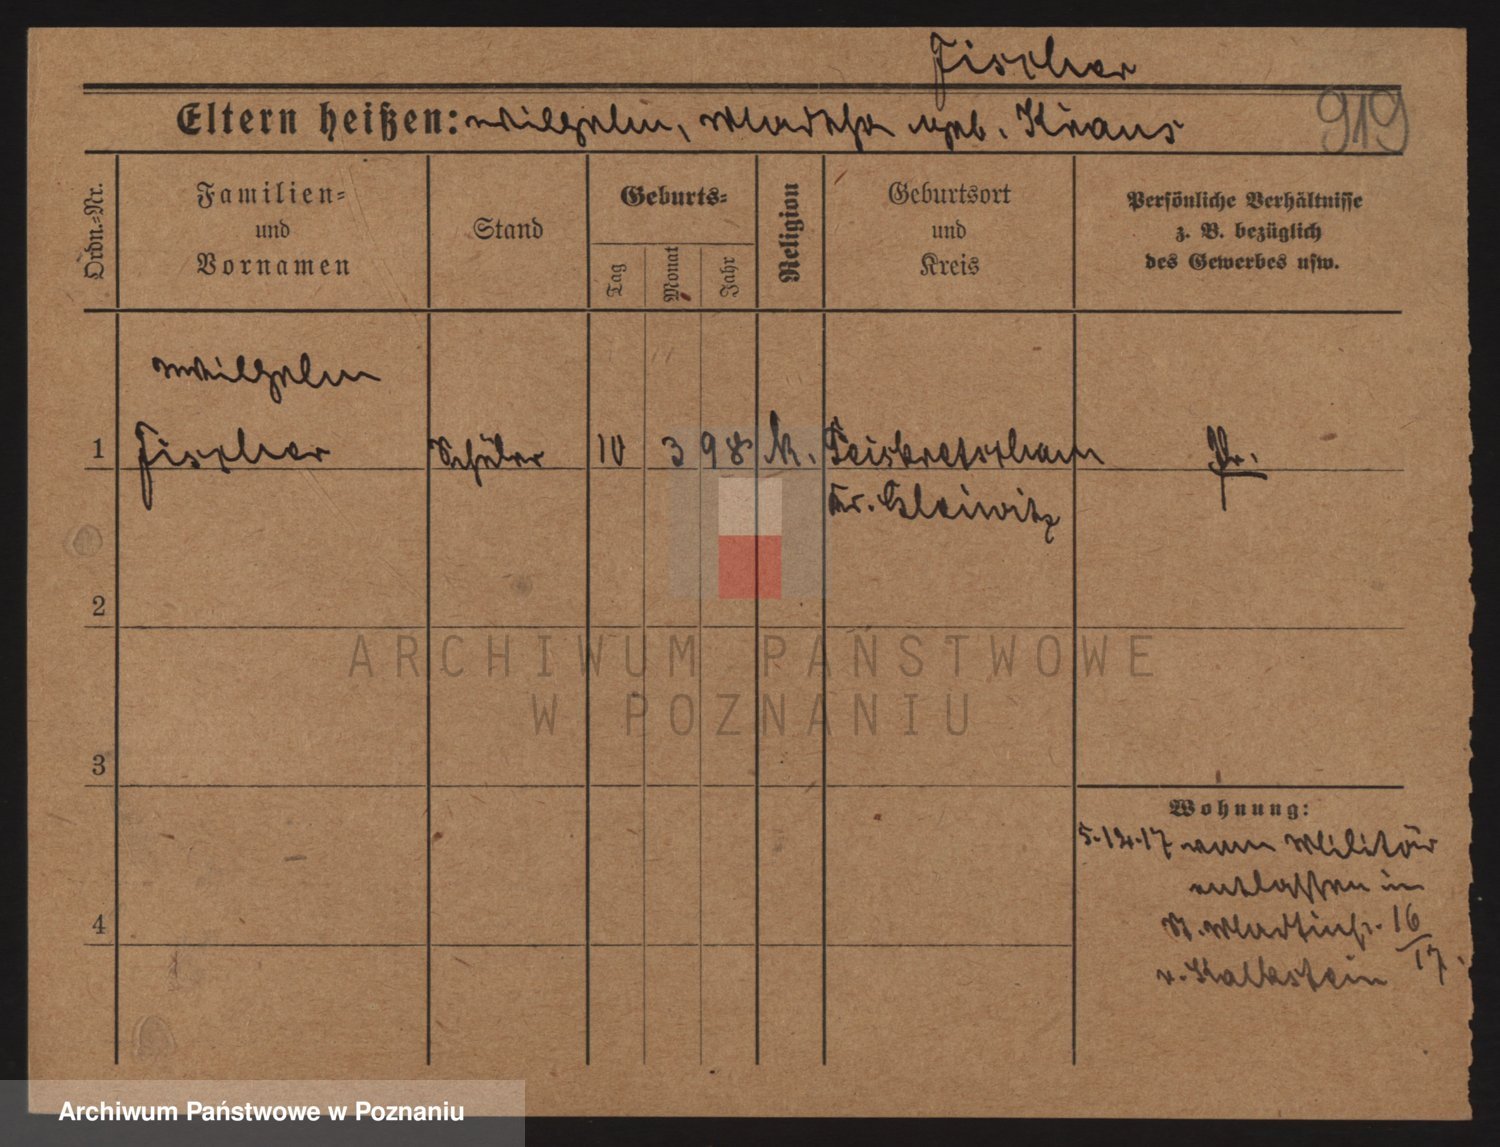 Fischer
Eltern heißen: Wilhelm, Martha geb. Kraus
919
Ordn.=Nr.
Familien=
und
Vornamen
Stand
Geburts=
Tag
Monat
Jahr
Religion
Geburtsort
und
Kreis
Persönliche Verhältnisse
z. B. bezüglich
des Gewerbes usw.
Wilhelm
1 Fischer Schüler 10 3 98 k. Peiskretscham Pr.
Kr. Gleiwitz
2
3
4
ARCHIWUM PAŃSTWOWE
W POZNANIU
Wohnung:
5.12.17 vom Militär
entlassen in
St. Martinstr. 16/17.
v. Kalkstein
Archiwum Państwowe w Poznaniu